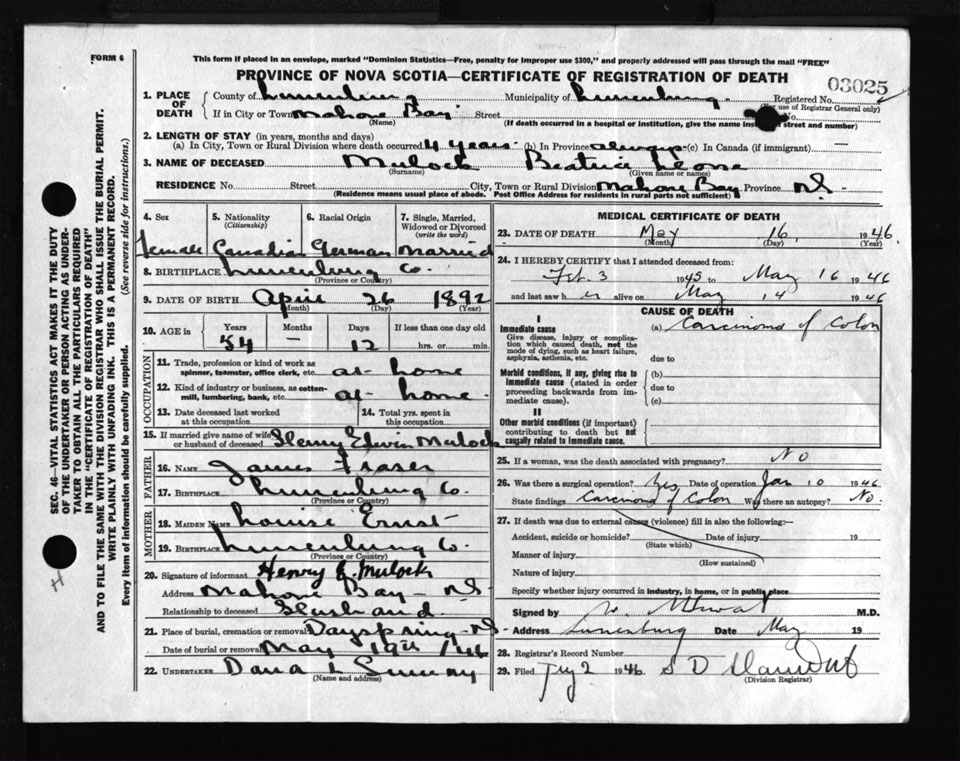 FORM 6
This form if placed in an envelope, marked "Dominion Statistics—Free, penalty for improper use $300," and properly addressed will pass through the mail "FREE"
PROVINCE OF NOVA SCOTIA—CERTIFICATE OF REGISTRATION OF DEATH
03025
1. PLACE OF DEATH County of Lunenburg Municipality of Lunenburg. Registered No.
(For use of Registrar General only)
If in City or Town Mahone Bay Street
(Name) (If death occurred in a hospital or institution, give the name instead of street and number)
2. LENGTH OF STAY (in years, months and days)
(a) In City, Town or Rural Division where death occurred 4 years (b) In Province always (c) In Canada (if immigrant) —
3. NAME OF DECEASED Mulock Beatrice Leone
(Surname) (Given name or names)
RESIDENCE No. Street City, Town or Rural Division Mahone Bay Province N.S.
(Residence means usual place of abode. Post Office Address for residents in rural parts not sufficient)
4. Sex 5. Nationality 6. Racial Origin 7. Single, Married,
(Citizenship) Widowed or Divorced
(write the word)
Female Canadian German Married
8. BIRTHPLACE Lunenburg Co.
(Province or Country)
9. DATE OF BIRTH April 26 1892
(Month) (Day) (Year)
10. AGE in Years Months Days If less than one day old
54 — 12 hrs. or min.
OCCUPATION
11. Trade, profession or kind of work as
spinner, teamster, office clerk, etc. at home
12. Kind of industry or business, as cotton-
mill, lumbering, bank, etc. at home.
13. Date deceased last worked 14. Total yrs. spent in
at this occupation this occupation
15. If married give name of wife
or husband of deceased Henry Edwin Mulock
FATHER
16. NAME James Fraser
17. BIRTHPLACE Lunenburg Co.
(Province or Country)
MOTHER
18. MAIDEN NAME Louise Ernst
19. BIRTHPLACE Lunenburg Co.
(Province or Country)
20. Signature of informant Henry E. Mulock
Address Mahone Bay — N.S.
Relationship to deceased Husband.
21. Place of burial, cremation or removal Dayspring N.S.
Date of burial or removal May 19th /46
22. UNDERTAKER Dana L
(Name and address)
MEDICAL CERTIFICATE OF DEATH
23. DATE OF DEATH May 16, 1946.
(Month) (Day) (Year)
24. I HEREBY CERTIFY that I attended deceased from:
Feb. 3 1945 to May 16 1946
and last saw her alive on May 14 1946
CAUSE OF DEATH
I
Immediate cause (a) Carcinoma of Colon
Give disease, injury or complica-
tion which caused death, not the
mode of dying, such as heart failure,
asphyxia, asthenia, etc. due to
Morbid conditions, if any, giving rise to (b)
immediate cause (stated in order
proceeding backwards from im- due to
mediate cause). (c)
II
Other morbid conditions (if important)
contributing to death but not
causally related to immediate cause.
25. If a woman, was the death associated with pregnancy? NO
26. Was there a surgical operation? Yes Date of operation Jan 10 1946
State findings Carcinoma of Colon Was there an autopsy? No.
27. If death was due to external causes (violence) fill in also the following:—
Accident, suicide or homicide? Date of injury 19
(State which)
Manner of injury
(How sustained)
Nature of injury
Specify whether injury occurred in industry, in home, or in public place
Signed by M.D.
Address Lunenburg Date May 19
28. Registrar's Record Number
29. Filed 2 1946 S D
(Division Registrar)
SEC. 46—VITAL STATISTICS ACT MAKES IT THE DUTY
OF THE UNDERTAKER OR PERSON ACTING AS UNDER-
TAKER TO OBTAIN ALL THE PARTICULARS REQUIRED
IN THE "CERTIFICATE OF REGISTRATION OF DEATH"
AND TO FILE THE SAME WITH THE DIVISION REGISTRAR WHO SHALL ISSUE THE BURIAL PERMIT.
WRITE PLAINLY WITH UNFADING INK. THIS IS A PERMANENT RECORD.
Every item of information should be carefully supplied. (See reverse side for instructions.)
H